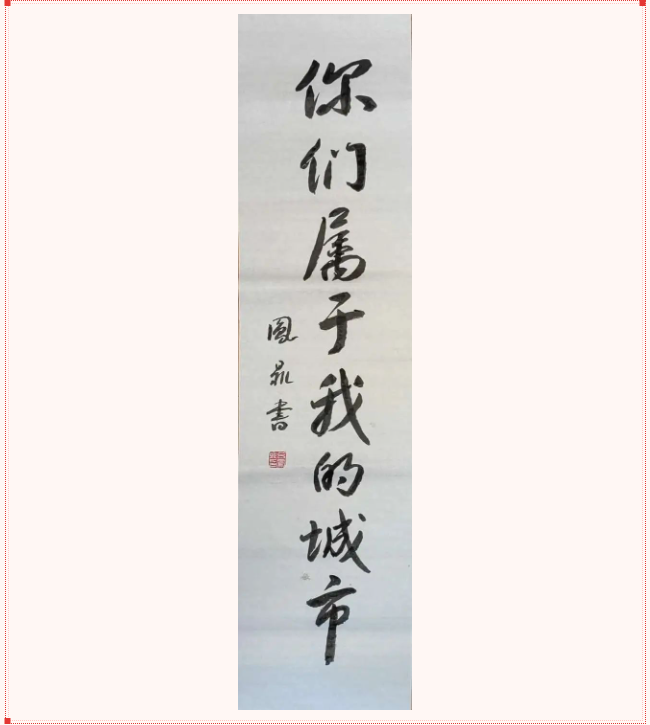 你们属于我的城市
凤鼎书